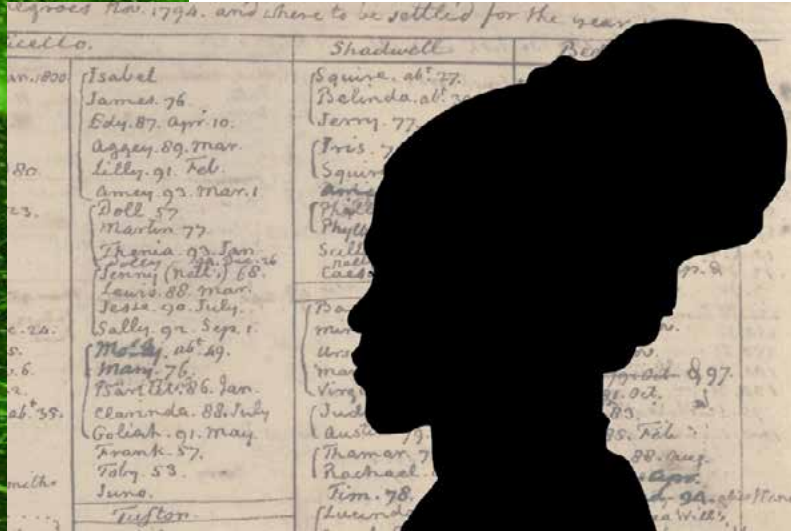 egroes Nov. 1794. and where to be settled for the year
icello.
an. 1800
80
23.
c. 24.
5.
. 6.
ab.t 35.
smith.
Isabel
James. 76.
Edy. 87. Apr. 10.
Aggey. 89. Mar.
Lilly. 91. Feb.
Amey. 93. Mar. 1
Doll 57
Martin 77
Thenia 93. Jan
Dolly 94. Dec. 26
Jenny (Ned's) 68.
Lewis. 88. Mar.
Jesse. 90. July.
Sally. 92. Sep. 1.
Molly. ab.t 49.
Mary. 76.
Bartlet. 86. Jan.
Clarinda. 88. July
Goliah. 91. May
Frank. 57.
Toby. 53.
Juno.
Tufton
Shadwell
Squire. ab.t 27.
Belinda. ab.t
Jerry. 77.
Iris. 7
Squir
Phill
Phyll
Scill
Caesa
Ba
min
urs
ma
Virg
Jud
Aust 79.
Thamar. 7
Rachael
Tim. 78.
Lucinda
Bed
p. 2
Oct. 97.
Oct.
83.
85. Feb
88. Aug.
Apr.
94.
Will's